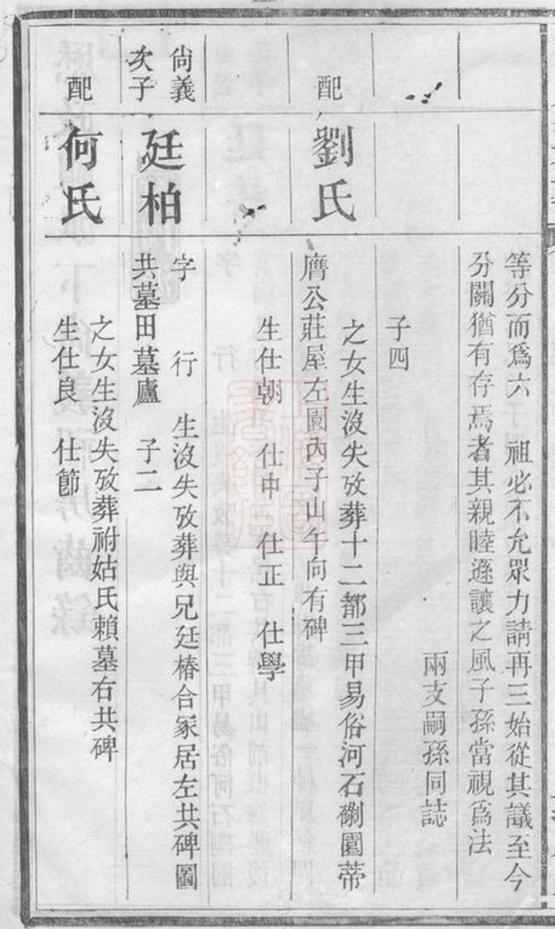 等分而爲六　祖必不允眾力請再三始從其議至今
分關猶有存焉者其親睦遜讓之風子孫當視爲法
兩支嗣孫同誌
子四
配
劉氏
之女生沒失攷葬十二都三甲易俗河石𥓓園蒂
膺公莊屋左園內子山午向有碑
生仕朝　仕中　仕正　仕學
尙義
次子
廷柏
字　行　生沒失攷葬與兄廷椿合冢居左共碑圖
共墓田墓廬　子二
配
何氏
之女生沒失攷葬祔姑氏賴墓右共碑
生仕良　仕節